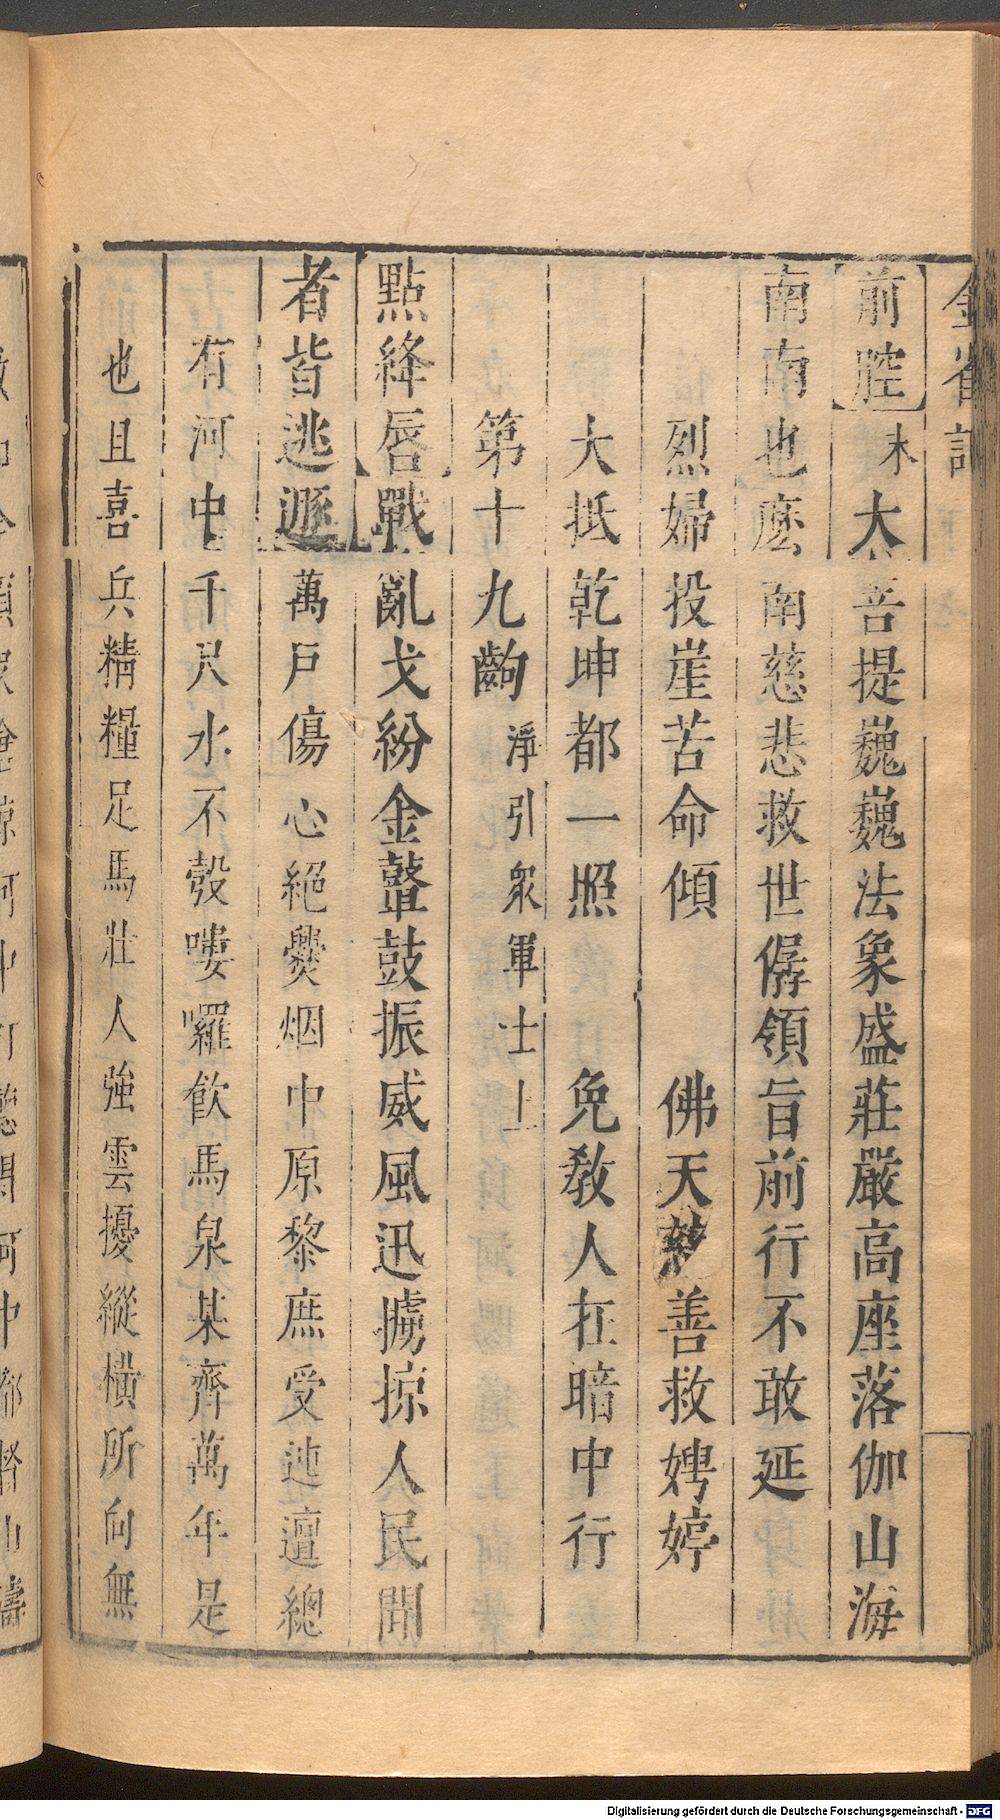 金雀記
前腔木大菩提巍巍法象盛莊嚴高座落伽山海
南南也麽南慈悲救世僝領旨前行不敢延
烈婦投崖苦命傾　佛天慈善救娉婷
大抵乾坤都一照　免教人在暗中行
第十九齣淨引衆軍士上
點絳唇戰亂戈紛金鼙鼓振威風迅擄掠人民聞
者皆逃遯萬戶傷心絕爨烟中原黎庶受迍邅總
有河中千尺水不彀嘍囉飲馬泉某齊萬年是
也且喜兵精糧足馬壯人強雲擾縱橫所向無
Digitalisierung gefördert durch die Deutsche Forschungsgemeinschaft - DFG